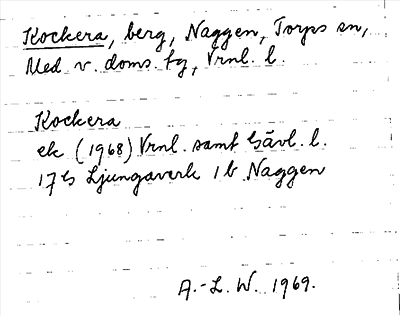 Kockera, berg, Naggen, Torps sn,
Med. v. doms. fg, Vrnl. l.
Kockera
ek (1968) Vrnl. samt Gävl. l.
17 G Ljungaverk 1 b Naggen
A.-L. W. 1969.